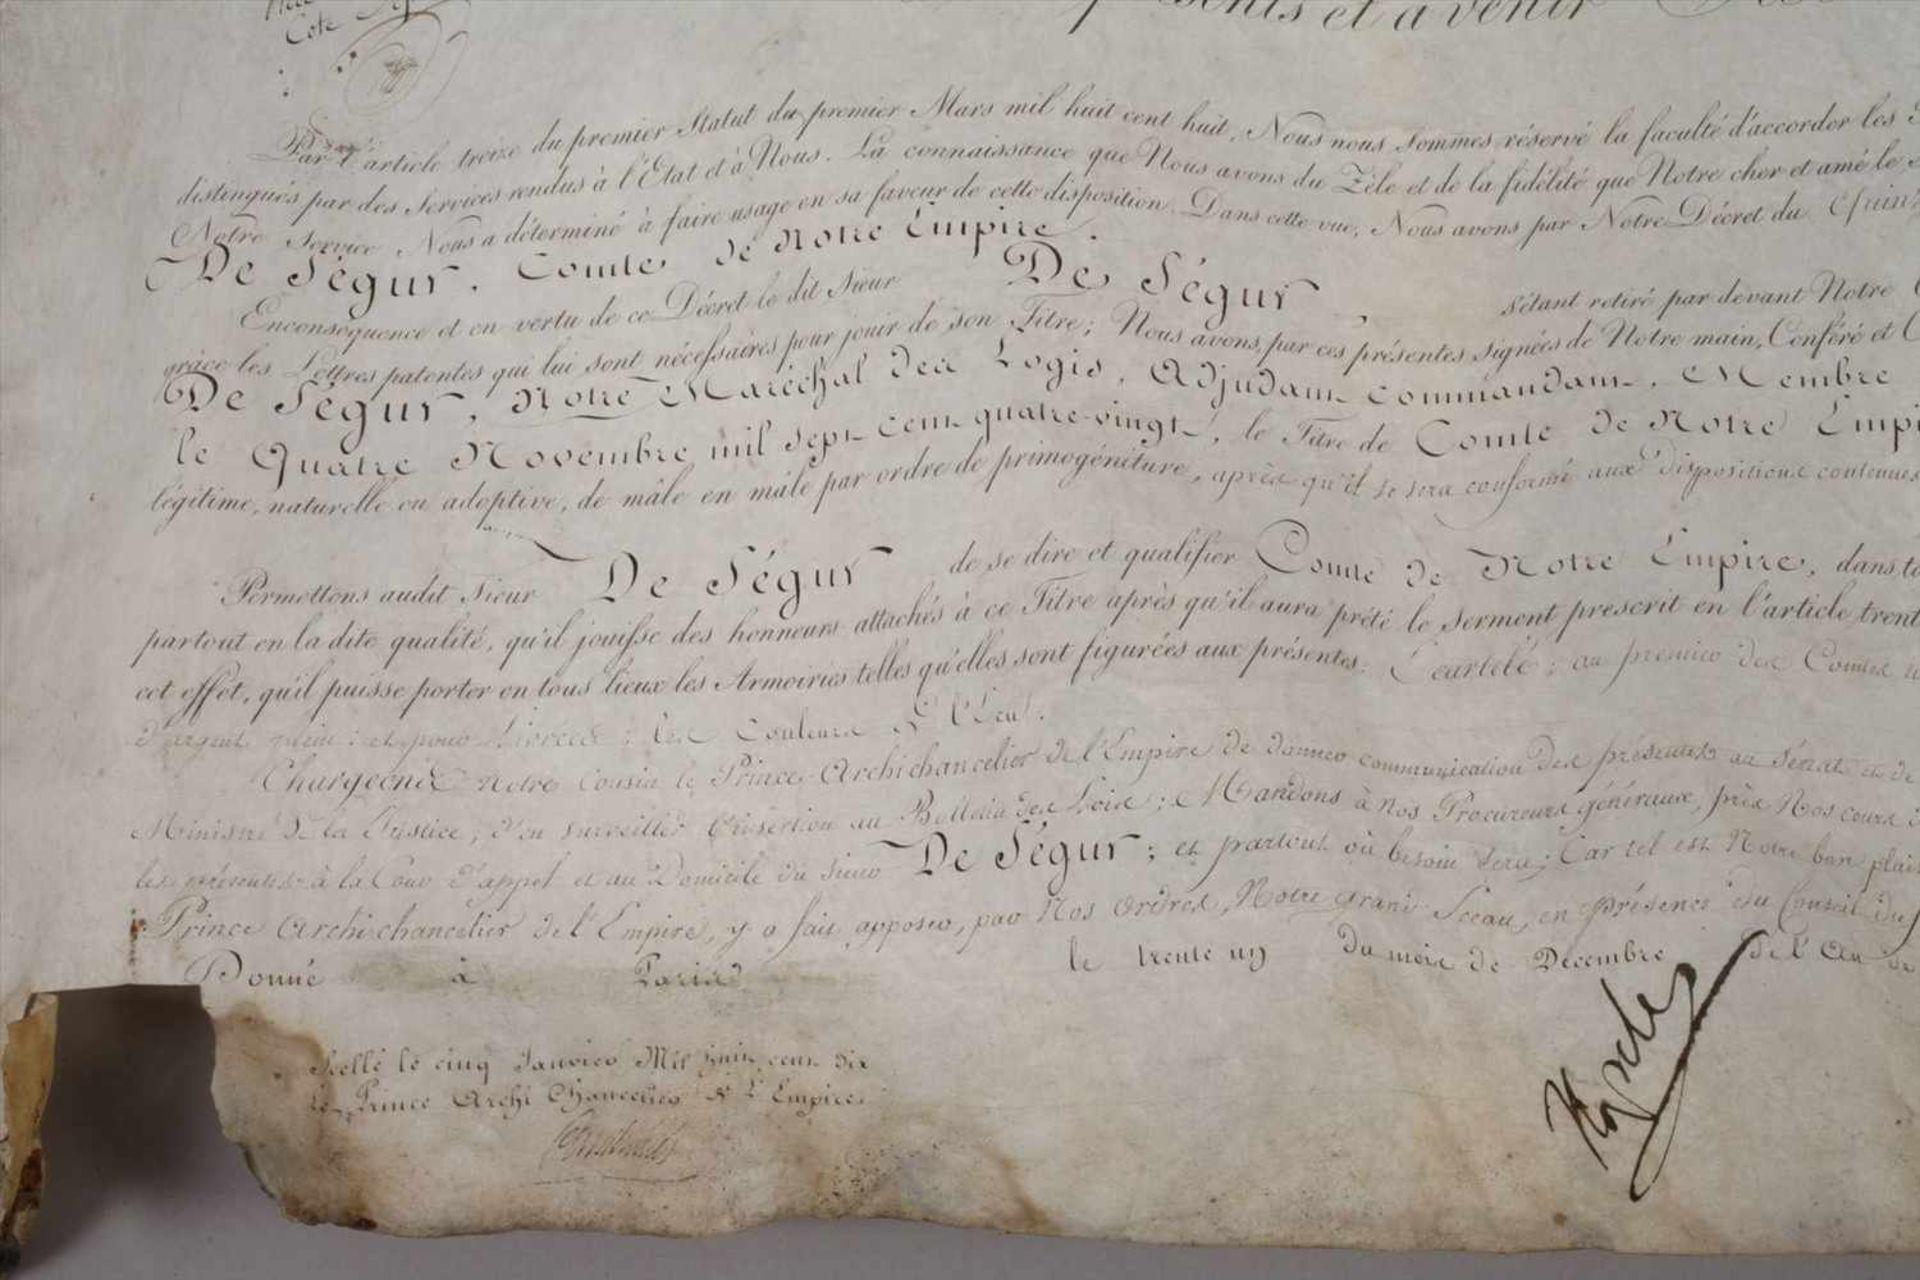 Cote
présents et à venir
Par l'article treize du premier Statut du premier Mars mil huit cent huit, Nous nous sommes réservé la faculté d'accorder les
distingués par des Services rendus à l'Etat et à Nous. La connaissance que Nous avons du Zèle et de la fidélité que Notre cher et amé le
Notre Service Nous a déterminé à faire usage en sa faveur de cette disposition. Dans cette vue, Nous avons par Notre Décret du Quinze
De Ségur, Comte de Notre Empire.
Enconséquence et en vertu de ce Décret le dit Sieur De Ségur, s'étant retiré par devant Notre
grâce les Lettres patentes qui lui sont nécessaires pour jouir de son Titre; Nous avons, par ces présentes signées de Notre main, Conféré et
De Ségur, Notre Maréchal des Logis, Adjudant commandant, Membre
le Quatre Novembre mil sept cent quatre-vingt, le Titre de Comte de Notre Empi
légitime, naturelle ou adoptive, de mâle en mâle par ordre de primogéniture, après qu'il se sera conformé aux dispositions contenues
Permettons audit Sieur De Ségur de se dire et qualifier Comte de Notre Empire, dans to
partout en la dite qualité, qu'il jouisse des honneurs attachés à ce Titre après qu'il aura prêté le serment prescrit en l'article trent
cet effet, qu'il puisse porter en tous lieux les Armoiries telles qu'elles sont figurées aux présentes: Ecartelé; au premier des Comtes
d'argent plein: et pour Livrées: les Couleurs de l'Ecu.
Chargeons Notre Cousin le Prince Archichancelier de l'Empire de donner communication des présentes au Sénat et de
Ministre de la Justice, d'en surveiller l'insertion au Bulletin des Loix; Mandons à nos Procureurs généraux, près Nos cours
les présentes à la Cour d'appel et au Domicile du Sieur De Ségur; et partout où besoin sera; Car tel est Notre bon plai
Prince Archichancelier de l'Empire, y a fait apposer, par Nos ordres, Notre grand Sceau, en présence du Conseil du
Donné à Paris le trente un du mois de Décembre de l'An
Scellé le cinq Janvier Mil huit cent dix
Le Prince Archi Chancelier de l'Empire.